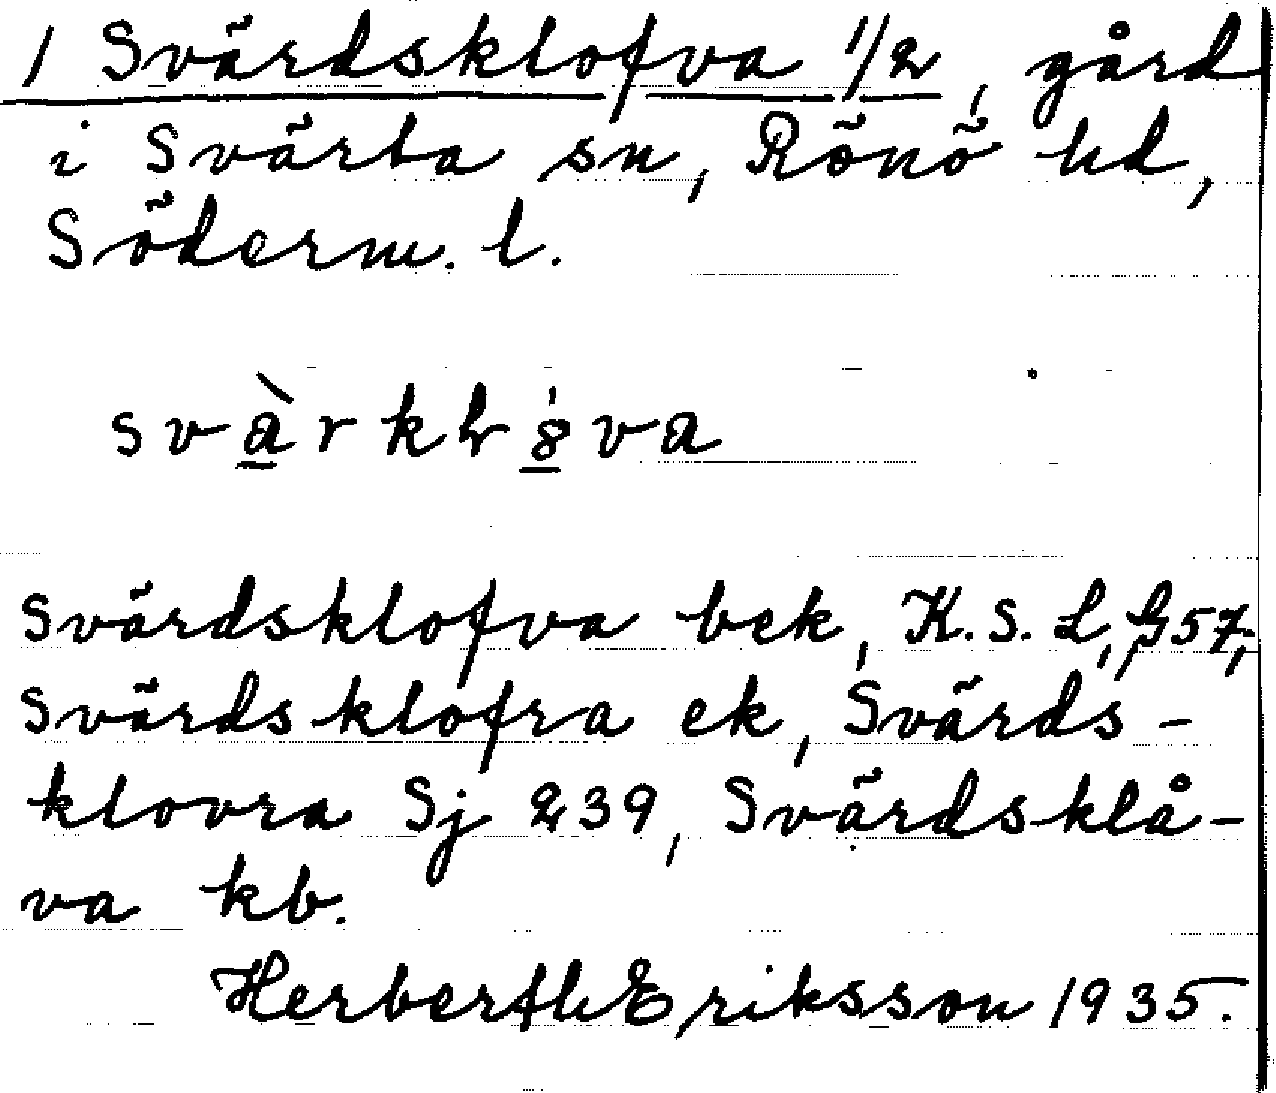 1 Svärdsklofva 1/2, gård
i Svärta sn, Rönö hd,
Söderm. l.
Svärdsklofva bek, K. S. L, G57,
Svärdsklofra ek, Svärds-
klovra Sj 239, Svärdsklå-
va kb.
Herberth Eriksson 1935.